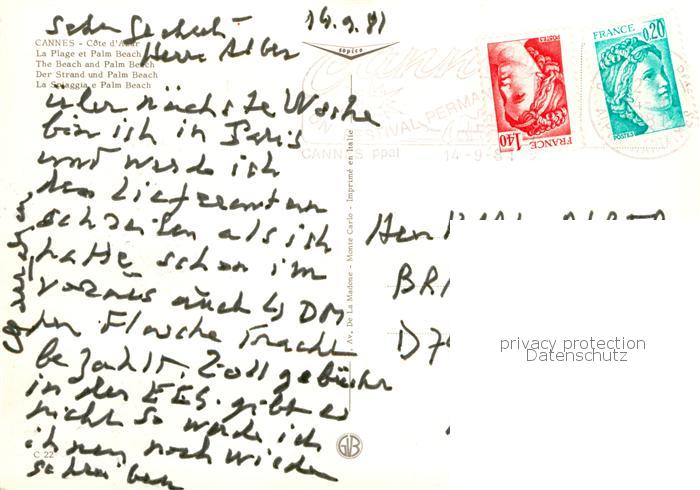 14.9.81
Sehr geehrter
Herr Alber
CANNES - Côte d'Azur
La Plage et Palm Beach
The Beach and Palm Beach
Der Strand und Palm Beach
La Spiaggia e Palm Beach
sopico
über nächste Woche
bin ich in Paris
und werde ich
den Lieferanten
schreiben als ich
hatte schon im
voraus auch
DM
Flasche Fracht
bezahlt. Zoll gebühr
in der EEG. gibt es
nicht so werde ich
ihnen noch wieder
schreiben
C 22
Av. De La Madone - Monte Carlo - Imprimé en Italie
FESTIVAL PERMAN
CANNES ppal 14-9-81
1,40 FRANCE POSTES
FRANCE 0,20 POSTES
Herr
BR
D7
privacy protection
Datenschutz